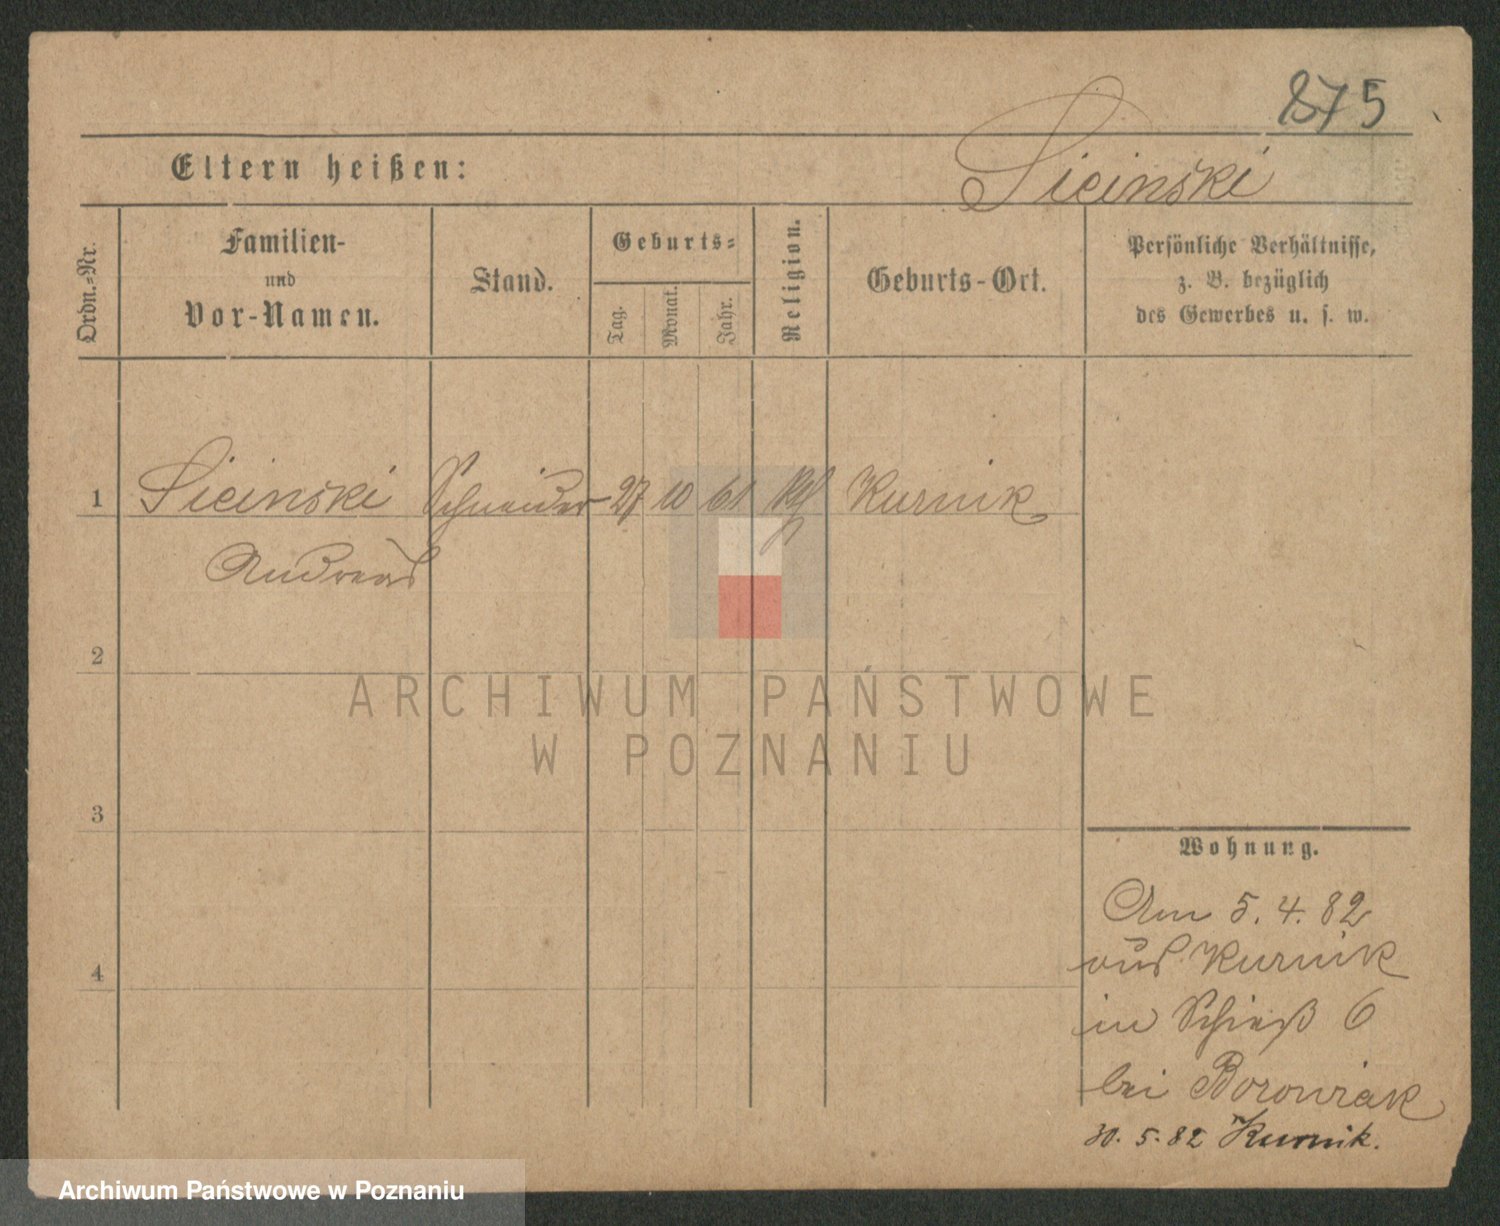 875
Eltern heißen:
Sicinski
Ordn.-Nr.
Familien-
und
Vor-Namen.
Stand.
Geburts-
Tag.
Monat.
Jahr.
Religion.
Geburts-Ort.
Persönliche Verhältnisse,
z. B. bezüglich
des Gewerbes u. s. w.
1 Sicinski Schneider 27 10 61 Kurnik
Andreas
2
3
4
ARCHIWUM PAŃSTWOWE
W POZNANIU
Wohnung.
Am 5. 4. 82
aus Kurnik
in Schieß 6
bei Borowiak
30. 5. 82 Kurnik.
Archiwum Państwowe w Poznaniu